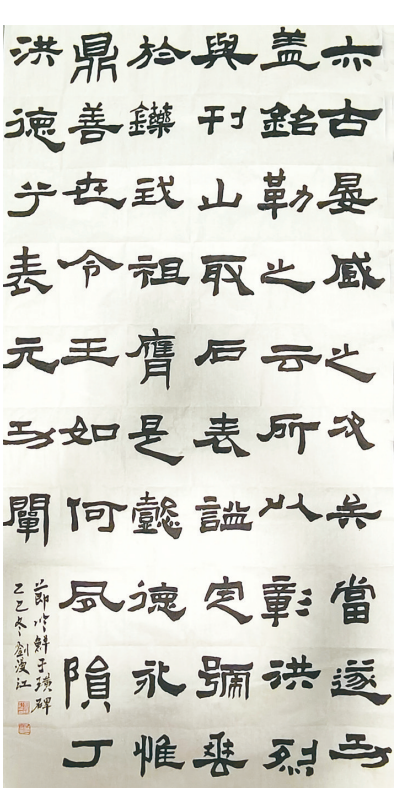 亦古晏臧之次矣當遂功
盖銘勒之云所以彰洪烈
與刊山取石表謚定號垂
於鑠我祖膺是懿德永惟
鼎善世令王如何夙隕丁
洪德兮表元功闡
節臨鮮于璜碑
乙巳冬劉江